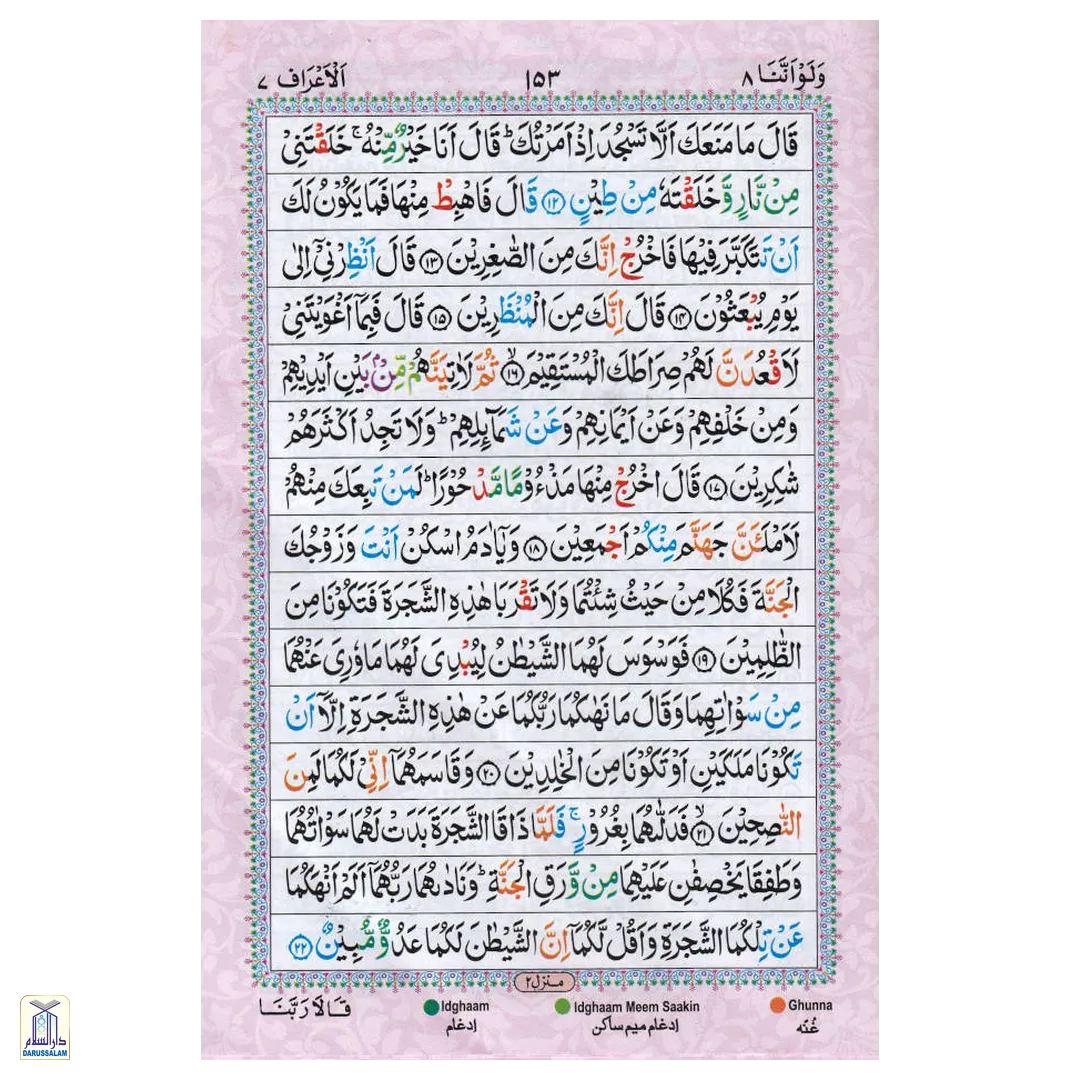 وَلَوْ اَنَّنَا ۸
۱۵۳
اَلْاَعْرَاف ۷
قَالَ مَا مَنَعَكَ اَلَّا تَسْجُدَ اِذْ اَمَرْتُكَ ؕ قَالَ اَنَا خَيْرٌ مِّنْهُ ۚ خَلَقْتَنِيْ
مِنْ نَّارٍ وَّ خَلَقْتَهٗ مِنْ طِيْنٍ ﴿۱۲﴾ قَالَ فَاهْبِطْ مِنْهَا فَمَا يَكُوْنُ لَكَ
اَنْ تَتَكَبَّرَ فِيْهَا فَاخْرُجْ اِنَّكَ مِنَ الصّٰغِرِيْنَ ﴿۱۳﴾ قَالَ اَنْظِرْنِيْۤ اِلٰى
يَوْمِ يُبْعَثُوْنَ ﴿۱۴﴾ قَالَ اِنَّكَ مِنَ الْمُنْظَرِيْنَ ﴿۱۵﴾ قَالَ فَبِمَاۤ اَغْوَيْتَنِيْ
لَاَقْعُدَنَّ لَهُمْ صِرَاطَكَ الْمُسْتَقِيْمَ ﴿۱۶﴾ۙ ثُمَّ لَاٰتِيَنَّهُمْ مِّنْۢ بَيْنِ اَيْدِيْهِمْ
وَمِنْ خَلْفِهِمْ وَعَنْ اَيْمَانِهِمْ وَعَنْ شَمَآئِلِهِمْ ؕ وَلَا تَجِدُ اَكْثَرَهُمْ
شٰكِرِيْنَ ﴿۱۷﴾ قَالَ اخْرُجْ مِنْهَا مَذْءُوْمًا مَّدْحُوْرًا ؕ لَمَنْ تَبِعَكَ مِنْهُمْ
لَاَمْلَئَنَّ جَهَنَّمَ مِنْكُمْ اَجْمَعِيْنَ ﴿۱۸﴾ وَيٰۤاٰدَمُ اسْكُنْ اَنْتَ وَزَوْجُكَ
الْجَنَّةَ فَكُلَا مِنْ حَيْثُ شِئْتُمَا وَلَا تَقْرَبَا هٰذِهِ الشَّجَرَةَ فَتَكُوْنَا مِنَ
الظّٰلِمِيْنَ ﴿۱۹﴾ فَوَسْوَسَ لَهُمَا الشَّيْطٰنُ لِيُبْدِيَ لَهُمَا مَا وٗرِيَ عَنْهُمَا
مِنْ سَوْاٰتِهِمَا وَقَالَ مَا نَهٰىكُمَا رَبُّكُمَا عَنْ هٰذِهِ الشَّجَرَةِ اِلَّاۤ اَنْ
تَكُوْنَا مَلَكَيْنِ اَوْ تَكُوْنَا مِنَ الْخٰلِدِيْنَ ﴿۲۰﴾ وَقَاسَمَهُمَاۤ اِنِّيْ لَكُمَا لَمِنَ
النّٰصِحِيْنَ ﴿۲۱﴾ۙ فَدَلّٰىهُمَا بِغُرُوْرٍ ۚ فَلَمَّا ذَاقَا الشَّجَرَةَ بَدَتْ لَهُمَا سَوْاٰتُهُمَا
وَطَفِقَا يَخْصِفٰنِ عَلَيْهِمَا مِنْ وَّرَقِ الْجَنَّةِ ؕ وَنَادٰىهُمَا رَبُّهُمَاۤ اَلَمْ اَنْهَكُمَا
عَنْ تِلْكُمَا الشَّجَرَةِ وَاَقُلْ لَّكُمَاۤ اِنَّ الشَّيْطٰنَ لَكُمَا عَدُوٌّ مُّبِيْنٌ ﴿۲۲﴾
منزل ۲
Ghunna
غُنّه
Idghaam Meem Saakin
اِدغام میم ساکن
Idghaam
اِدغام
قَالَا رَبَّنَا
دار السلام
DARUSSALAM